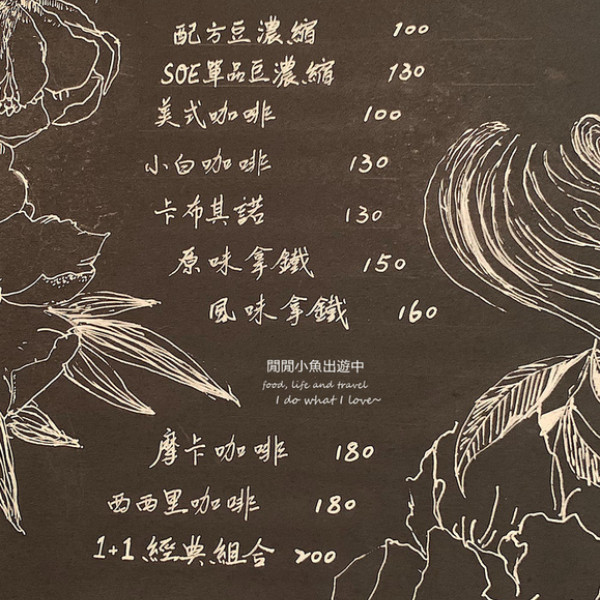 配方豆濃縮 100
SOE單品豆濃縮 130
美式咖啡 100
小白咖啡 130
卡布其諾 130
原味拿鐵 150
風味拿鐵 160
閒閒小魚出遊中
food, life and travel
I do what I love~
摩卡咖啡 180
西西里咖啡 180
1+1經典組合 200